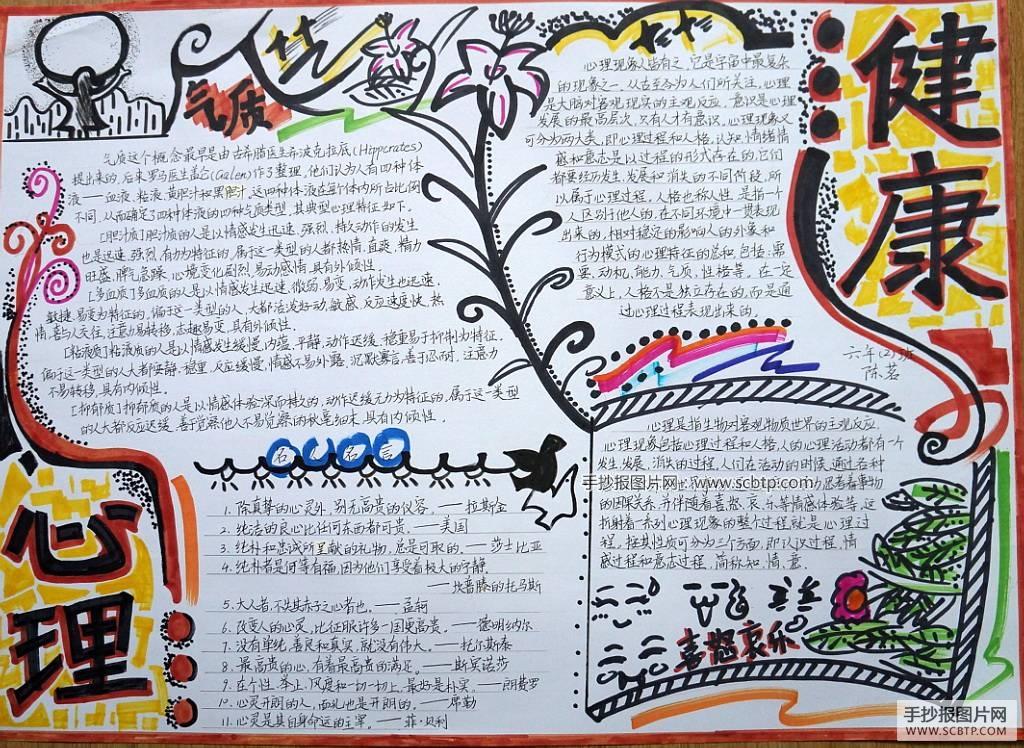 气质
气质这个概念最早是由古希腊医生希波克拉底(Hippcrates)
提出来的,后来罗马医生盖伦(Galen)作了整理,他们认为人有四种体
液——血液,粘液,黄胆汁和黑胆汁,这四种体液在每个体内所占比例
不同,从而确定了四种体液的四种气质类型,其典型心理特征如下。
[胆汁质]胆汁质的人是以情感发生迅速、强烈、持久动作的发生
也是迅速、强烈、有力为特征的,属于这一类型的人都热情,直爽,精力
旺盛,脾气急躁,心境变化剧烈,易动感情,具有外倾性。
[多血质]多血质的人是以情感发生迅速、微弱、易变,动作发生也迅速、
敏捷、易变为特征的,偏于这一类型的人,大都活泼好动,敏感,反应速度快,热
情,喜与人交往,注意力易转移,志趣易变,具有外倾性。
[粘液质]粘液质的人是以情感发生缓慢、内蕴、平静,动作迟缓、稳重易于抑制为特征。
偏于这一类型的人大都安静,稳重,反应缓慢,情感不易外露,沉默寡言,善于忍耐,注意力
不易转移,具有内倾性。
[抑郁质]抑郁质的人是以情感体验深而持久的,动作迟缓无力为特征的,属于这一类型
的人大都反应迟缓,善于觉察他人不易觉察的秋毫细末,具有内倾性。
心理现象人皆有之,它是宇宙中最复杂
的现象之一,从古至今为人们所关注,心理
是大脑对客观现实的主观反应,意识是心理
发展的最高层次,只有人才有意识,心理现象又
可分为两大类,即心理过程和人格,认知,情绪情
感和意志是以过程的形式存在的,它们
都要经历发生、发展和消失的不同阶段,所
以属于心理过程,人格也称人性,是指一个
人区别于他人的,在不同环境中一贯表现
出来的,相对稳定的影响人的外象和
行为模式的心理特征的总和,包括:需
要、动机、能力、气质、性格等。在一定
意义上,人格不是独立存在的,而是通
过心理过程表现出来的。
健康
六年(2)班
陈茗
心理
名人名言
1. 除真挚的心灵外,别无高贵的仪容。——拉斯金
2. 纯洁的良心比任何东西都可贵。——美国
3. 纯朴和忠诚所呈献的礼物,总是可取的。——莎士比亚
4. 纯朴者是何等有福,因为他们享受着极大的宁静。
——坎普滕的托马斯
5. 大人者,不失其赤子之心者也。——孟轲
6. 改变人的心灵,比征服许多一国更高贵。——德明纳尔
7. 没有单纯、善良和真实,就没有伟大。——托尔斯泰
8. 最高贵的心,有着最高贵的满足。——斯宾诺莎
9. 在个性、举止、风度和一切一切上,最好是朴实。——朗费罗
10. 心灵开朗的人,面孔也是开朗的。——席勒
11. 心灵是其自身命运的主宰。——菲·贝利
心理是指生物对客观物质世界的主观反应,
心理现象包括心理过程和人格人的心理活动都有一个
发生、发展、消失的过程,人们在活动的时候,通过各种
手抄报图片网:www.scbtp.com
力思考着事物
的因果关系,并伴随着喜、怒、哀、乐等情感体验等,这
折射着一系列心理现象的整个过程就是心理过
程,按其性质可分为三个方面,即认识过程、情
感过程和意志过程,简称知、情、意。
喜怒哀乐
手抄报图片网
WWW.SCBTP.COM